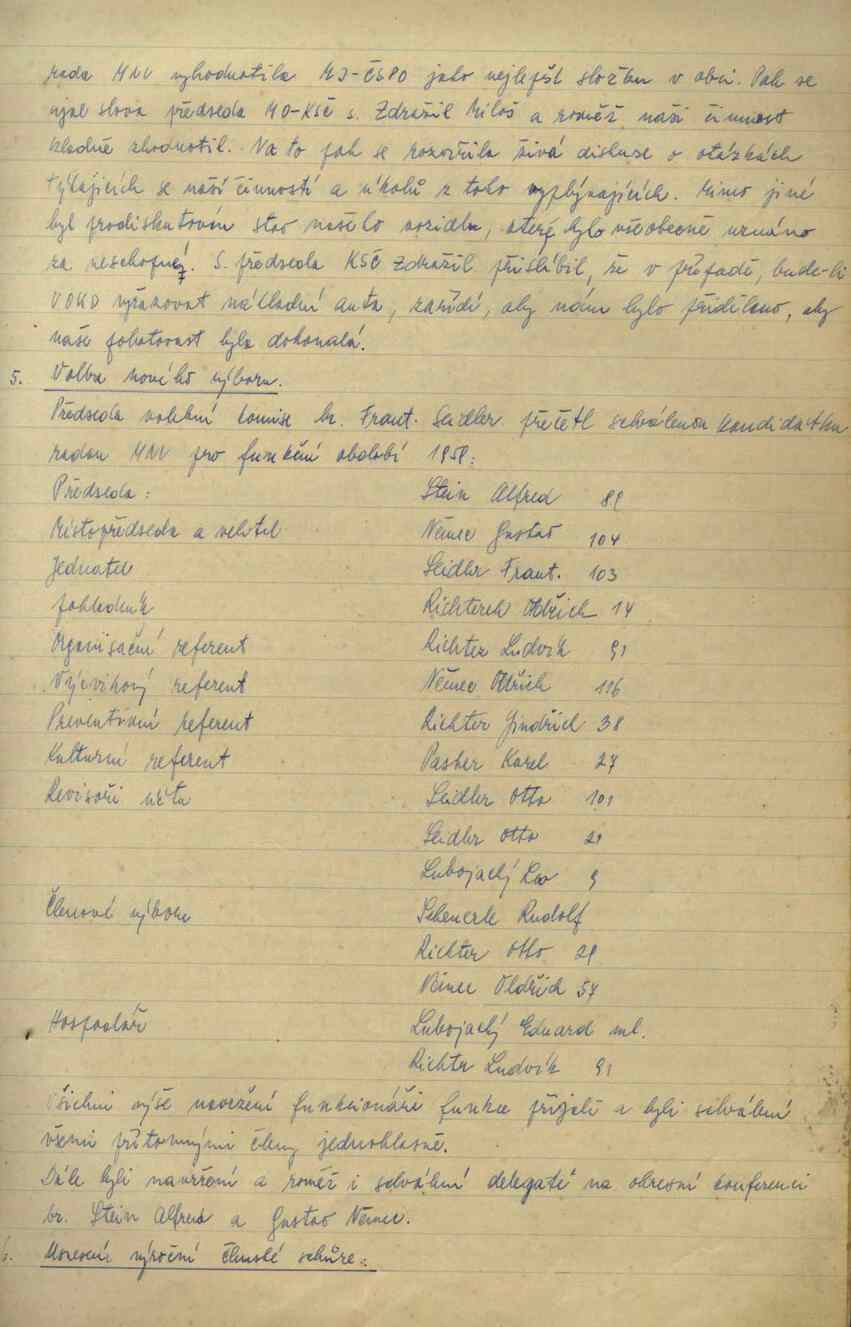 rada MNV vyhodnotila MJ-ČSPO jako nejlepší složku v obci. Pak se
ujal slova předseda MO-KSČ s. Zdražil Miloš a rovněž naši činnost
kladně zhodnotil. Na to pak se rozvířila živá diskuse o otázkách
týkajících se naší činnosti a úkolů z toho vyplývajících. Mimo jiné
byl prodiskutován stav našeho vozidla, které bylo všeobecně uznáno
za neschopné. S. předseda KSČ Zdražil přislíbil, že v případě, bude-li
vyřazovat nákladní auta, zařídí, aby nám bylo přiděleno, aby
naše pohotovost byla dokonalá.
5. Volba nového výboru.
Předseda volební komise br. Frant. Seidler přečetl schválenou kandidátku
radou MNV pro funkční období 1958:
Předseda: Stein Alfred 89
Místopředseda a velitel Němec Gustav 104
Jednatel Seidler Frant. 103
pokladník Richterek Oldřich 14
Organisační referent Richter Ludvík 91
Výcvikový referent Němec Oldřich 116
Preventivní referent Richter Jindřich 38
Kulturní referent Pasker Karel 27
Revisoři účtu Seidler Otto 101
Seidler Otto 21
Lubojacký Leo 9
Členové výboru Scheuerle Rudolf
Richter Otto 21
Němec Oldřich 57
Hospodář Lubojacký Eduard ml.
Richter Ludvík 91
Všichni výše navržení funkcionáři funkce přijali a byli schváleni
všemi přítomnými členy jednohlasně.
Dále byli navrženi a rovněž i schváleni delegáti na okresní konferenci
br. Stein Alfred a Gustav Němec.
6. Usnesení výroční členské schůze: